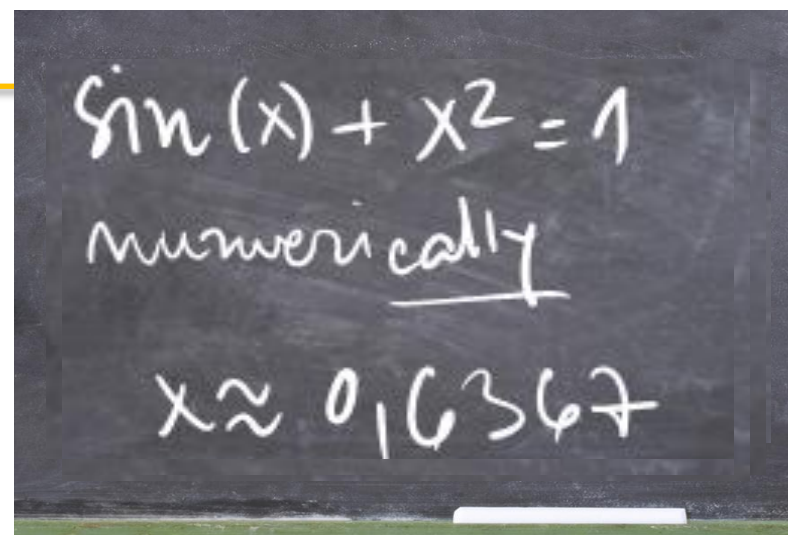 sin(x) + x² = 1
numerically
x ≈ 0,6367